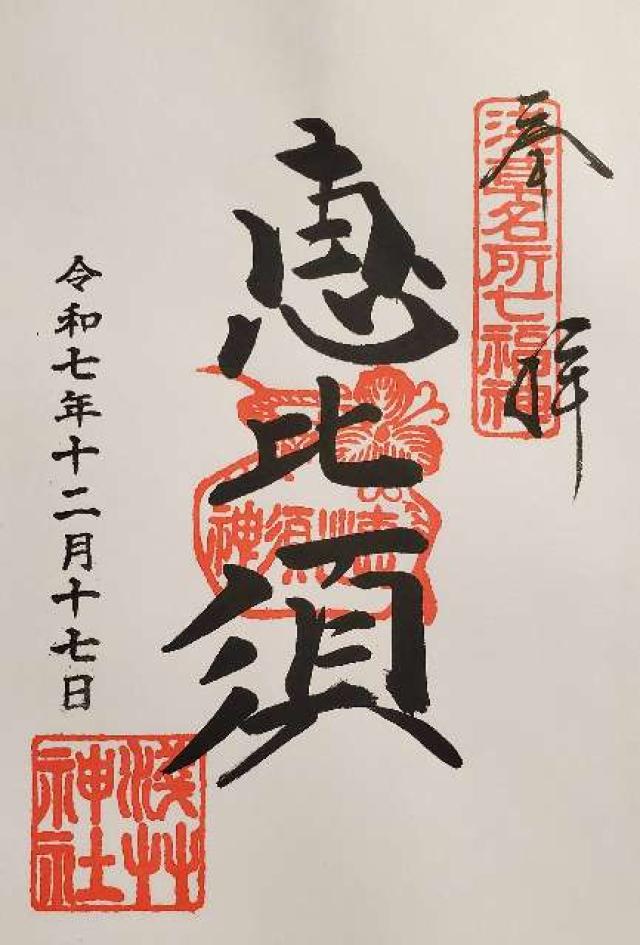 奉拝
浅草名所七福神
恵比須
恵比須神
令和七年十二月十七日
浅草神社